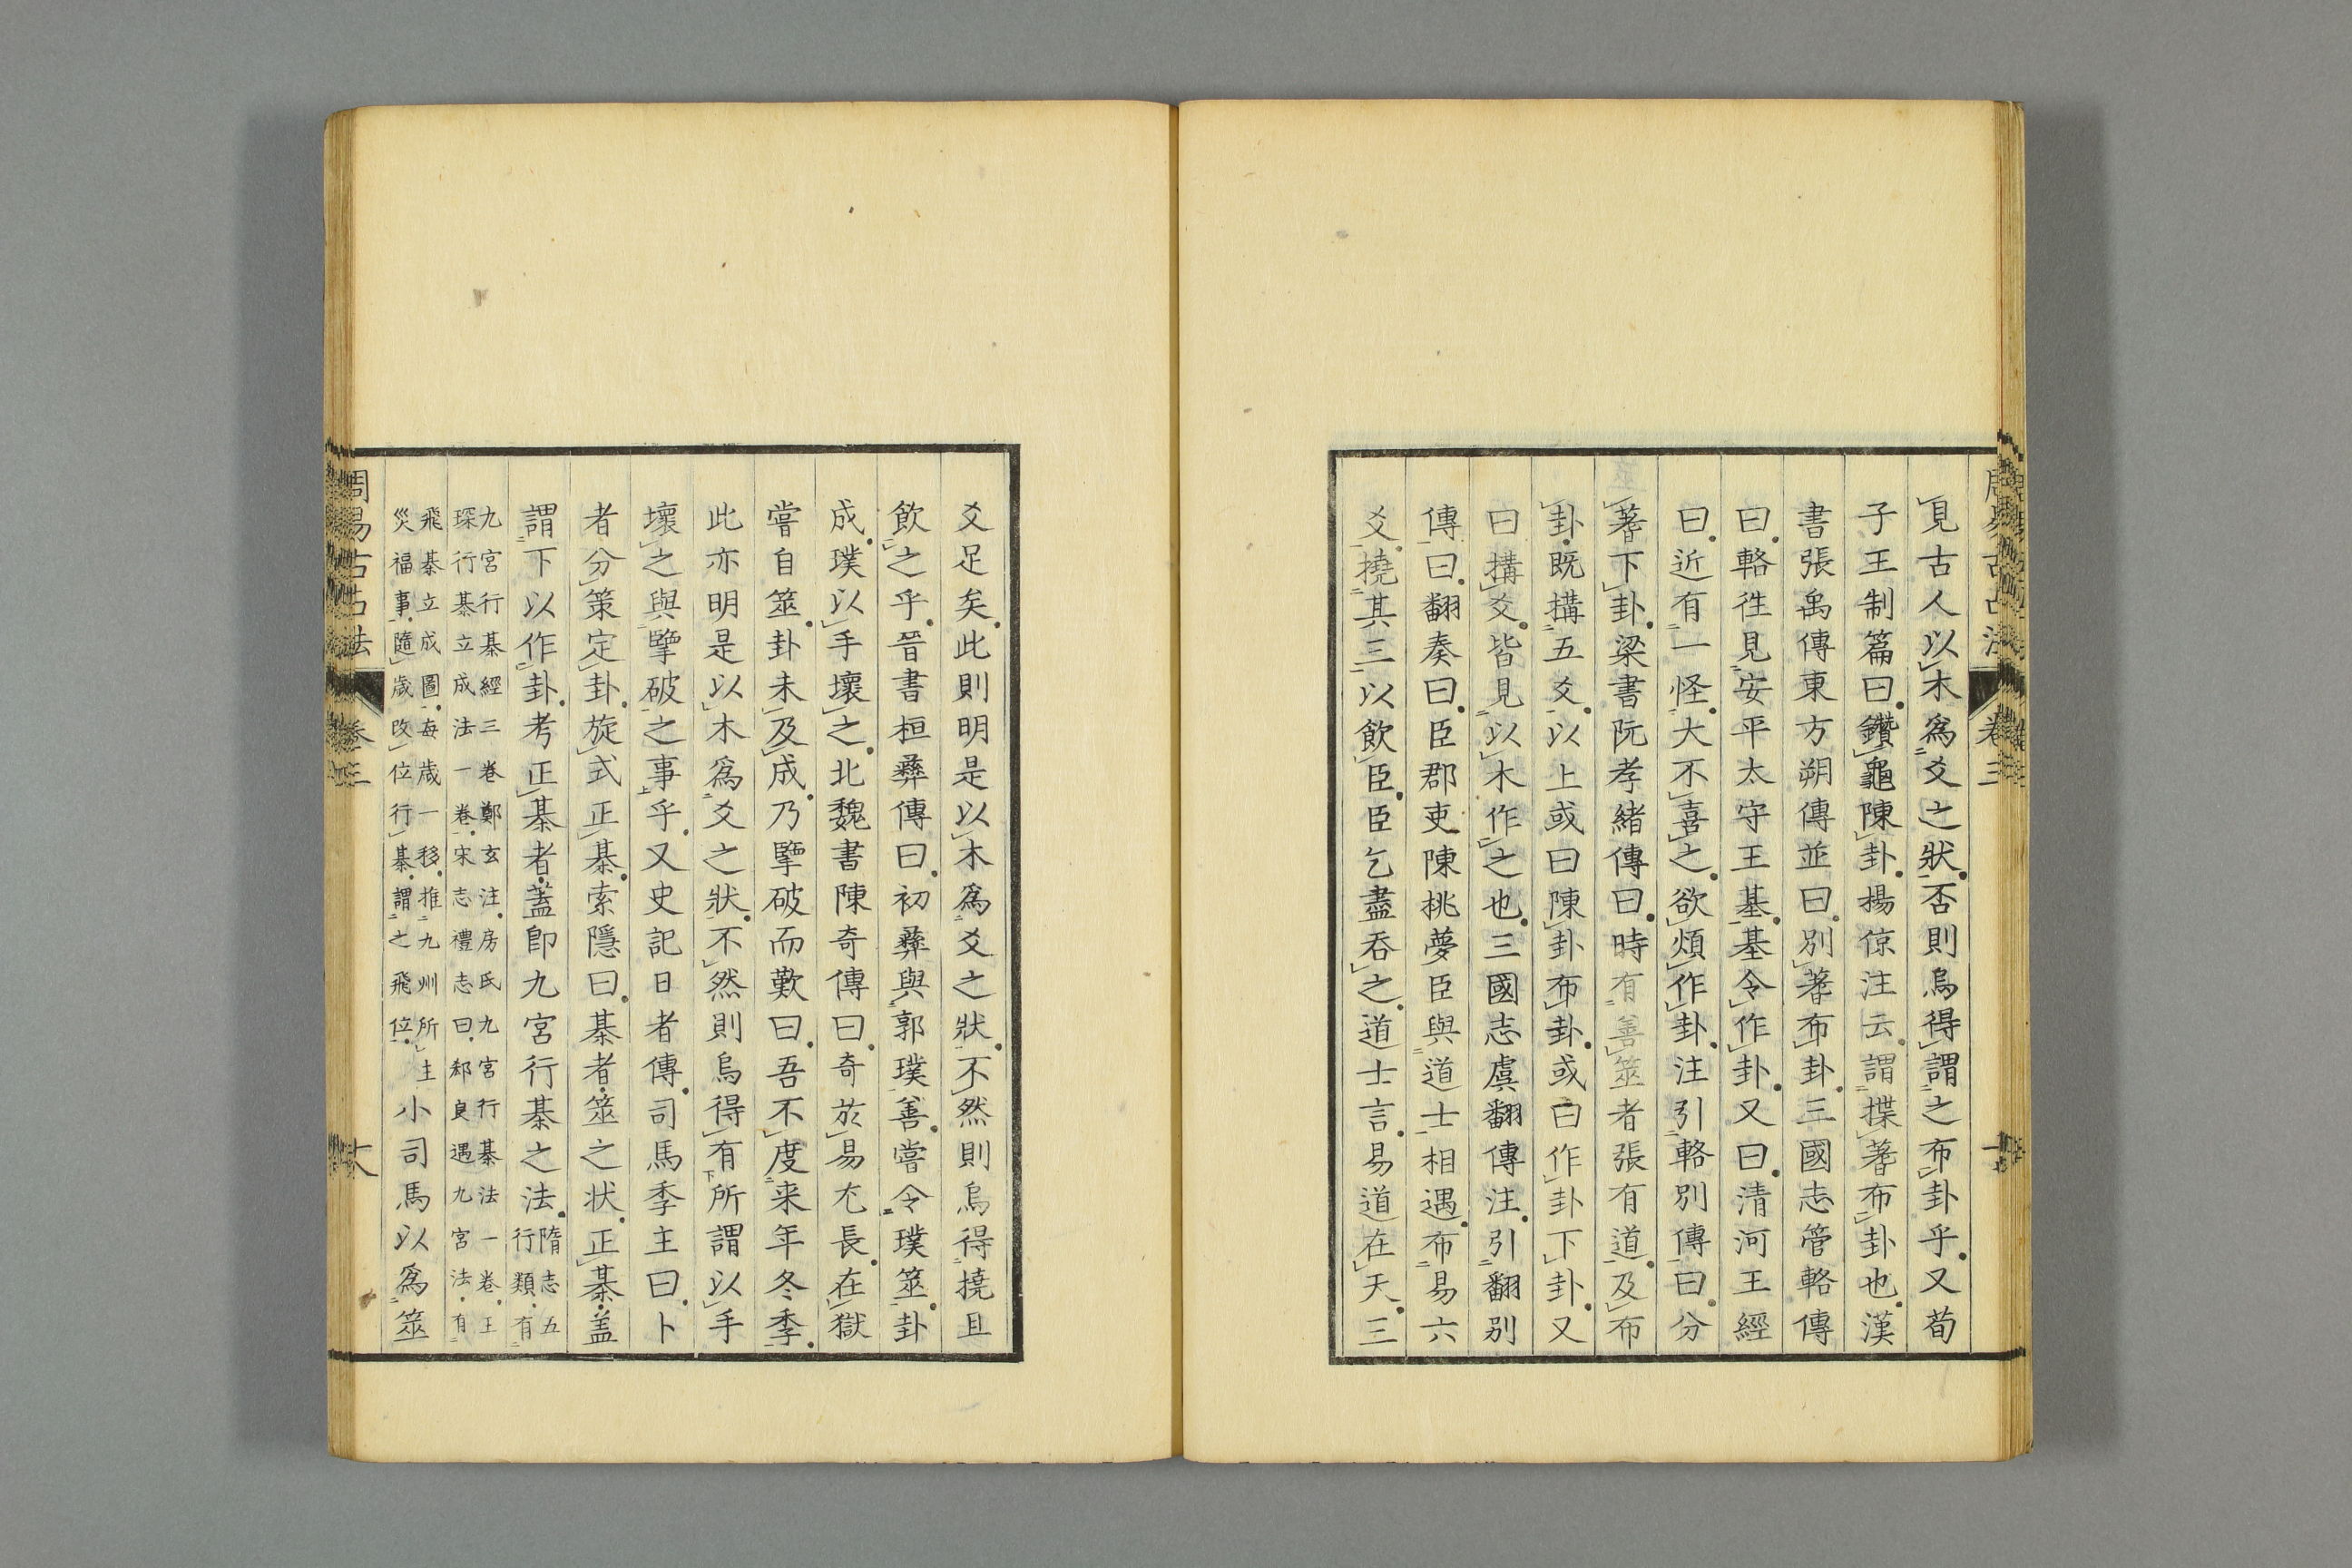 見古人以木爲爻之狀否則烏得謂之布卦乎又荀
子王制篇曰鑽龜陳卦揚倞注云謂揲蓍布卦也漢
書張禹傳東方朔傳並曰別蓍布卦三國志管輅傳
曰輅徃見安平太守王基基令作卦又曰清河王經
曰近有一怪大不喜之欲煩作卦注引輅別傳曰分
蓍下卦梁書阮孝緒傳曰時有善筮者張有道及布
卦既揲五爻以上或曰陳卦布卦或曰作卦下卦又
曰揲爻皆見以木作之也三國志虞翻傳注引翻別
傳曰翻奏曰臣郡吏陳桃夢臣與道士相遇布易六
爻撓其三以飲臣臣乞盡吞之道士言易道在天三
周易古占法 卷三
爻足矣此則明是以木爲爻之狀不然則烏得撓且
飲之乎晉書桓彝傳曰初彝與郭璞善嘗令璞筮卦
成璞以手壞之北魏書陳奇傳曰奇於易尤長在獄
嘗自筮卦未及成乃擊破而歎曰吾不度来年冬季
此亦明是以木爲爻之狀不然則烏得有所謂以手
壞之與擊破之事乎又史記日者傳司馬季主曰卜
者分策定卦旋式正棊索隱曰棊者筮之状正棊蓋
謂下以作卦考正棊者蓋卽九宮行棊之法隋志五行類有
九宮行棊經三卷鄭玄注房氏九宮行棊法一卷王
琛行棊立成法一卷宋志禮志曰郄良遇九宮法有
飛棊立成圖每歲一移推九州所主
災福事隨歲改位行棊謂之飛位小司馬以爲筮
周易古占法 卷三 十八